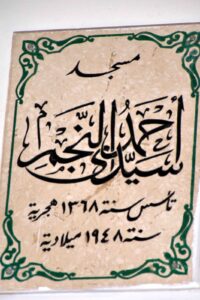 مسجد
سيّد أحمد النَّجم
تأسس سنة ١٣٦٨ هجرية
سنة ١٩٤٨ ميلادية